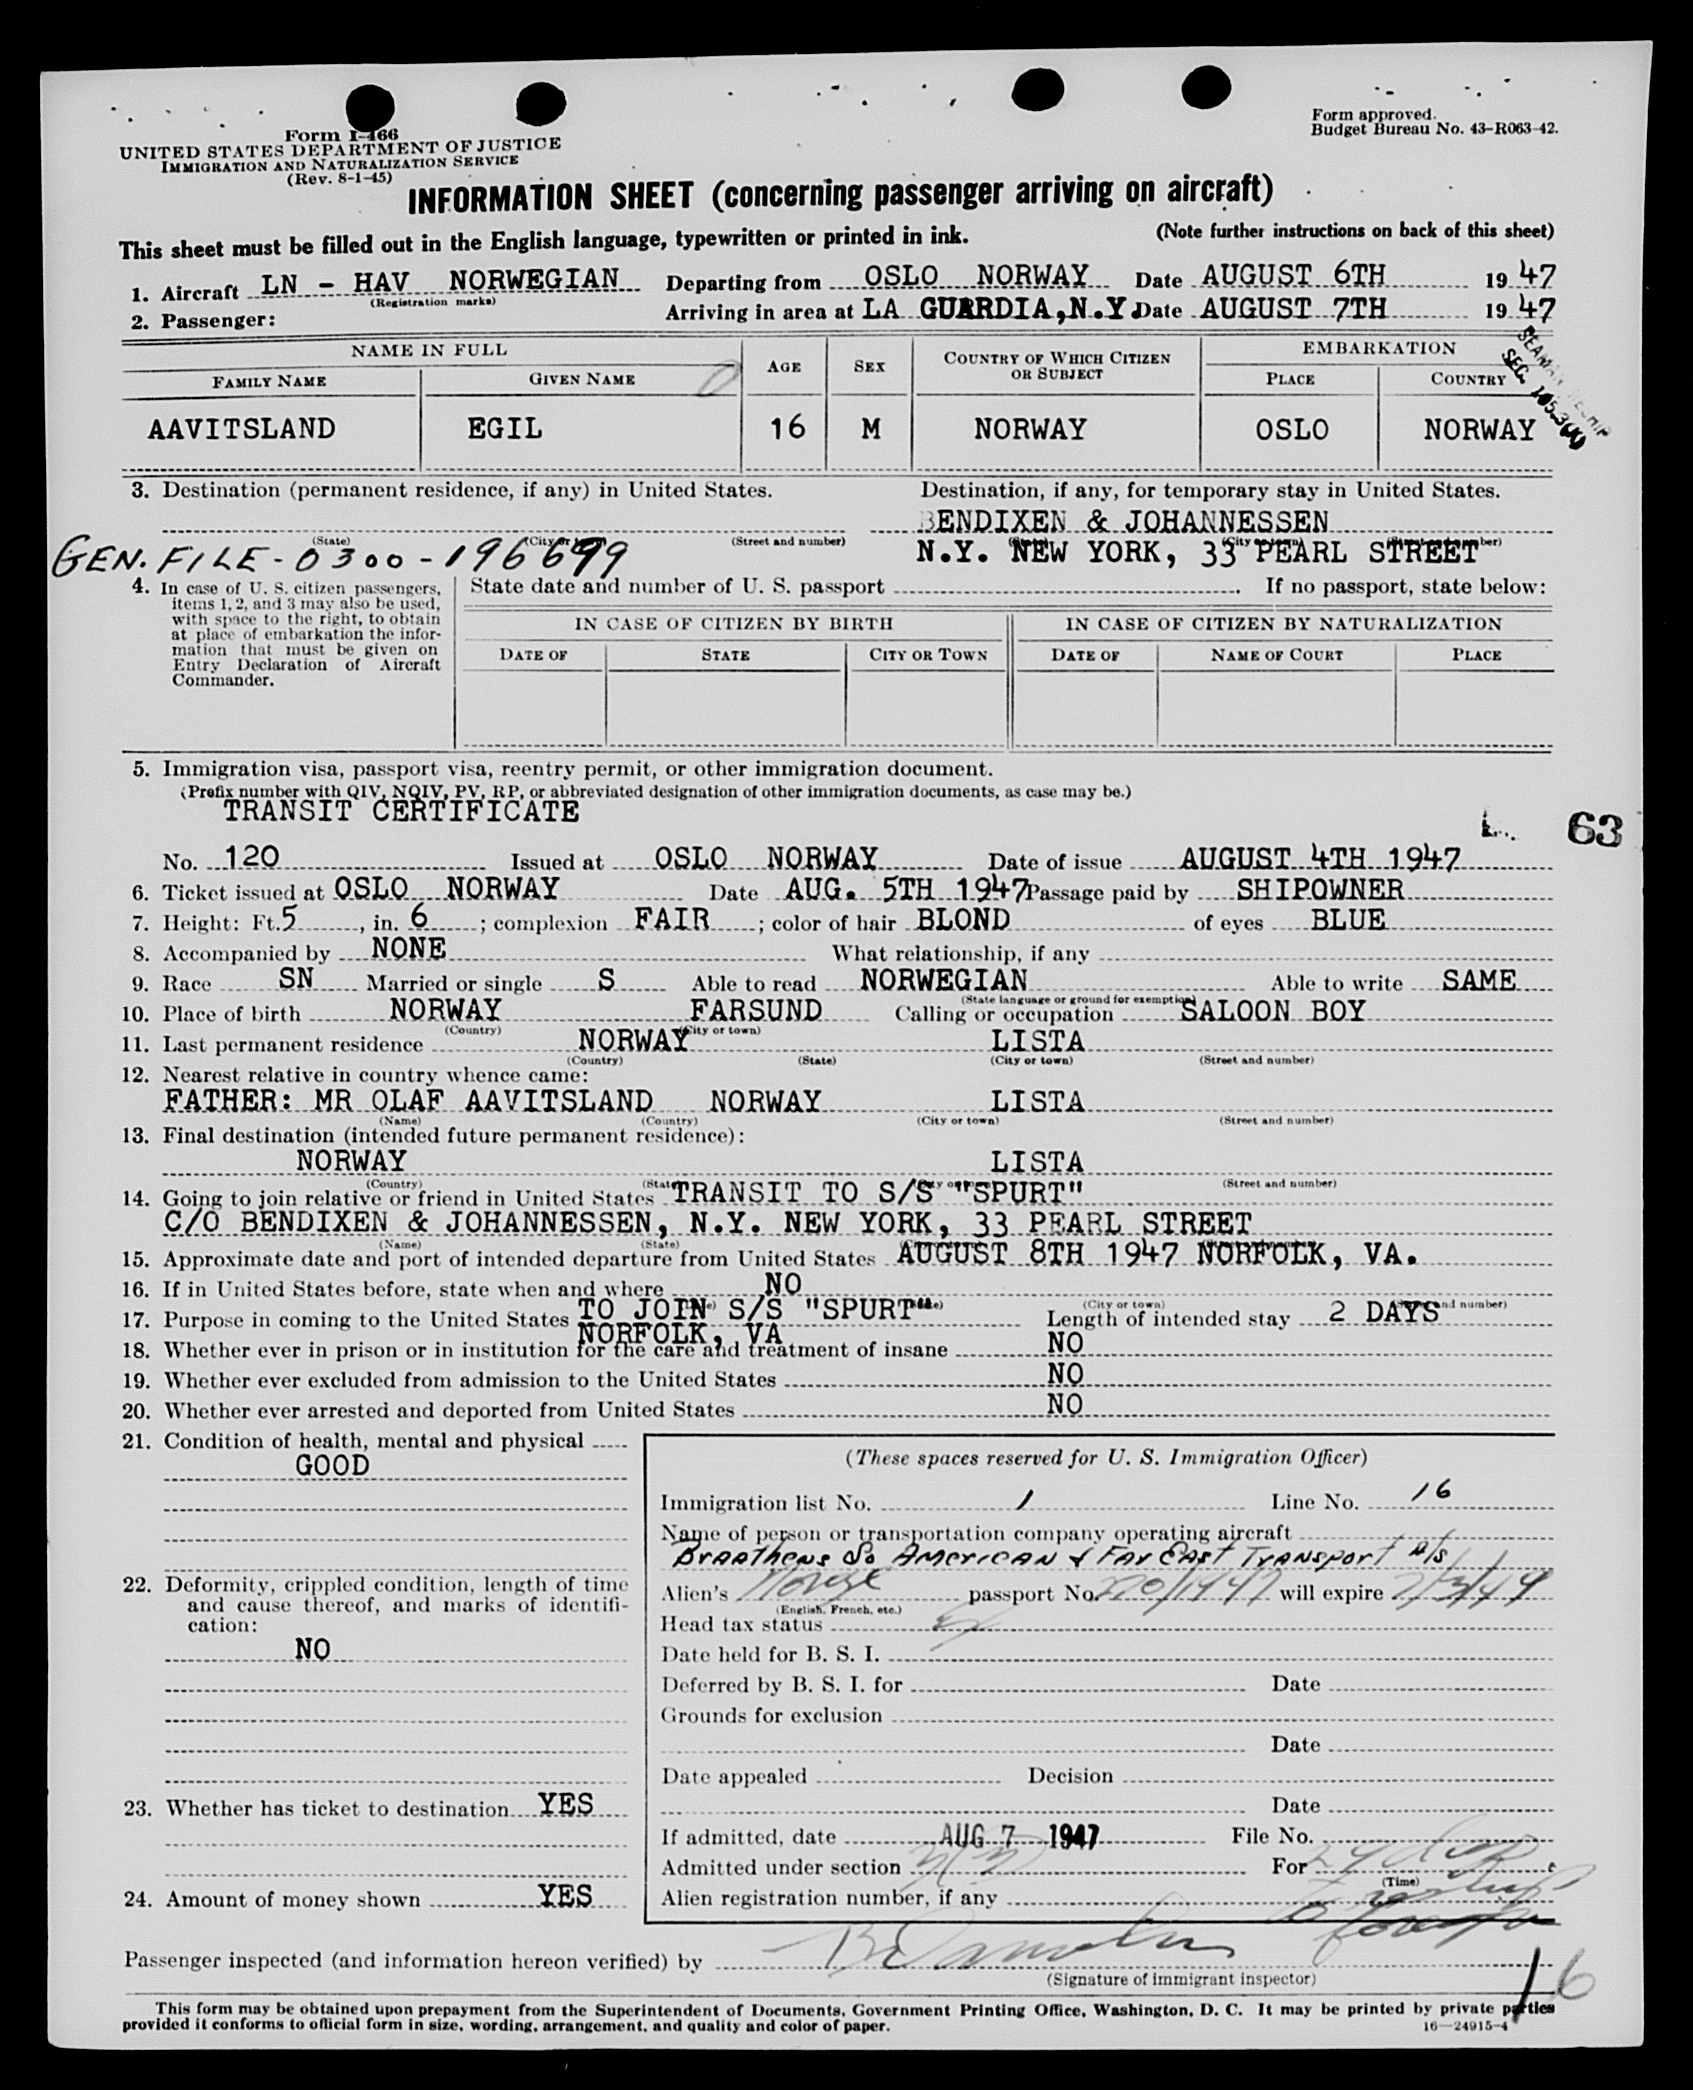 Form I-466
UNITED STATES DEPARTMENT OF JUSTICE
IMMIGRATION AND NATURALIZATION SERVICE
(Rev. 8-1-45)
Form approved.
Budget Bureau No. 43-R063-42.
INFORMATION SHEET (concerning passenger arriving on aircraft)
This sheet must be filled out in the English language, typewritten or printed in ink. (Note further instructions on back of this sheet)
1. Aircraft LN - HAV NORWEGIAN Departing from OSLO NORWAY Date AUGUST 6TH 19 47
(Registration marks)
2. Passenger: Arriving in area at LA GUARDIA, N.Y. Date AUGUST 7TH 19 47
NAME IN FULL AGE SEX COUNTRY OF WHICH CITIZEN OR SUBJECT EMBARKATION
FAMILY NAME GIVEN NAME PLACE COUNTRY
SEC. 105.3(K)
AAVITSLAND EGIL 16 M NORWAY OSLO NORWAY
3. Destination (permanent residence, if any) in United States. Destination, if any, for temporary stay in United States.
BENDIXEN & JOHANNESSEN
(State) (City or town) (Street and number)
GEN. FILE - 0300 - 196699 N.Y. NEW YORK, 33 PEARL STREET
4. In case of U. S. citizen passengers, items 1, 2, and 3 may also be used, with space to the right, to obtain at place of embarkation the information that must be given on Entry Declaration of Aircraft Commander.
State date and number of U. S. passport . If no passport, state below:
IN CASE OF CITIZEN BY BIRTH IN CASE OF CITIZEN BY NATURALIZATION
DATE OF STATE CITY OR TOWN DATE OF NAME OF COURT PLACE
5. Immigration visa, passport visa, reentry permit, or other immigration document.
(Prefix number with QIV, NQIV, PV, RP, or abbreviated designation of other immigration documents, as case may be.)
TRANSIT CERTIFICATE
63
No. 120 Issued at OSLO NORWAY Date of issue AUGUST 4TH 1947
6. Ticket issued at OSLO NORWAY Date AUG. 5TH 1947 Passage paid by SHIPOWNER
7. Height: Ft. 5, in. 6; complexion FAIR; color of hair BLOND of eyes BLUE
8. Accompanied by NONE What relationship, if any
9. Race SN Married or single S Able to read NORWEGIAN Able to write SAME
(State language or ground for exemption)
10. Place of birth NORWAY FARSUND Calling or occupation SALOON BOY
(Country) (City or town)
11. Last permanent residence NORWAY LISTA
(Country) (State) (City or town) (Street and number)
12. Nearest relative in country whence came:
FATHER: MR OLAF AAVITSLAND NORWAY LISTA
(Name) (Country) (City or town) (Street and number)
13. Final destination (intended future permanent residence):
NORWAY LISTA
(Country) (State) (City or town) (Street and number)
14. Going to join relative or friend in United States TRANSIT TO S/S "SPURT"
C/O BENDIXEN & JOHANNESSEN, N.Y. NEW YORK, 33 PEARL STREET
(Name) (State)
15. Approximate date and port of intended departure from United States AUGUST 8TH 1947 NORFOLK, VA.
16. If in United States before, state when and where NO
(City or town) (Street and number)
17. Purpose in coming to the United States TO JOIN S/S "SPURT" Length of intended stay 2 DAYS
NORFOLK, VA
18. Whether ever in prison or in institution for the care and treatment of insane NO
19. Whether ever excluded from admission to the United States NO
20. Whether ever arrested and deported from United States NO
21. Condition of health, mental and physical
GOOD
22. Deformity, crippled condition, length of time and cause thereof, and marks of identification:
NO
23. Whether has ticket to destination YES
24. Amount of money shown YES
(These spaces reserved for U. S. Immigration Officer)
Immigration list No. 1 Line No. 16
Name of person or transportation company operating aircraft
Braathens So American & Far East Transport A/S
Alien's Norge passport No. will expire
(English, French, etc.)
Head tax status
Date held for B. S. I.
Deferred by B. S. I. for Date
Grounds for exclusion
Date
Date appealed Decision
Date
If admitted, date AUG 7 1947 File No.
Admitted under section For
(Time)
Alien registration number, if any
Passenger inspected (and information hereon verified) by
(Signature of immigrant inspector)
16
This form may be obtained upon prepayment from the Superintendent of Documents, Government Printing Office, Washington, D. C. It may be printed by private parties
provided it conforms to official form in size, wording, arrangement, and quality and color of paper. 16—24915-4